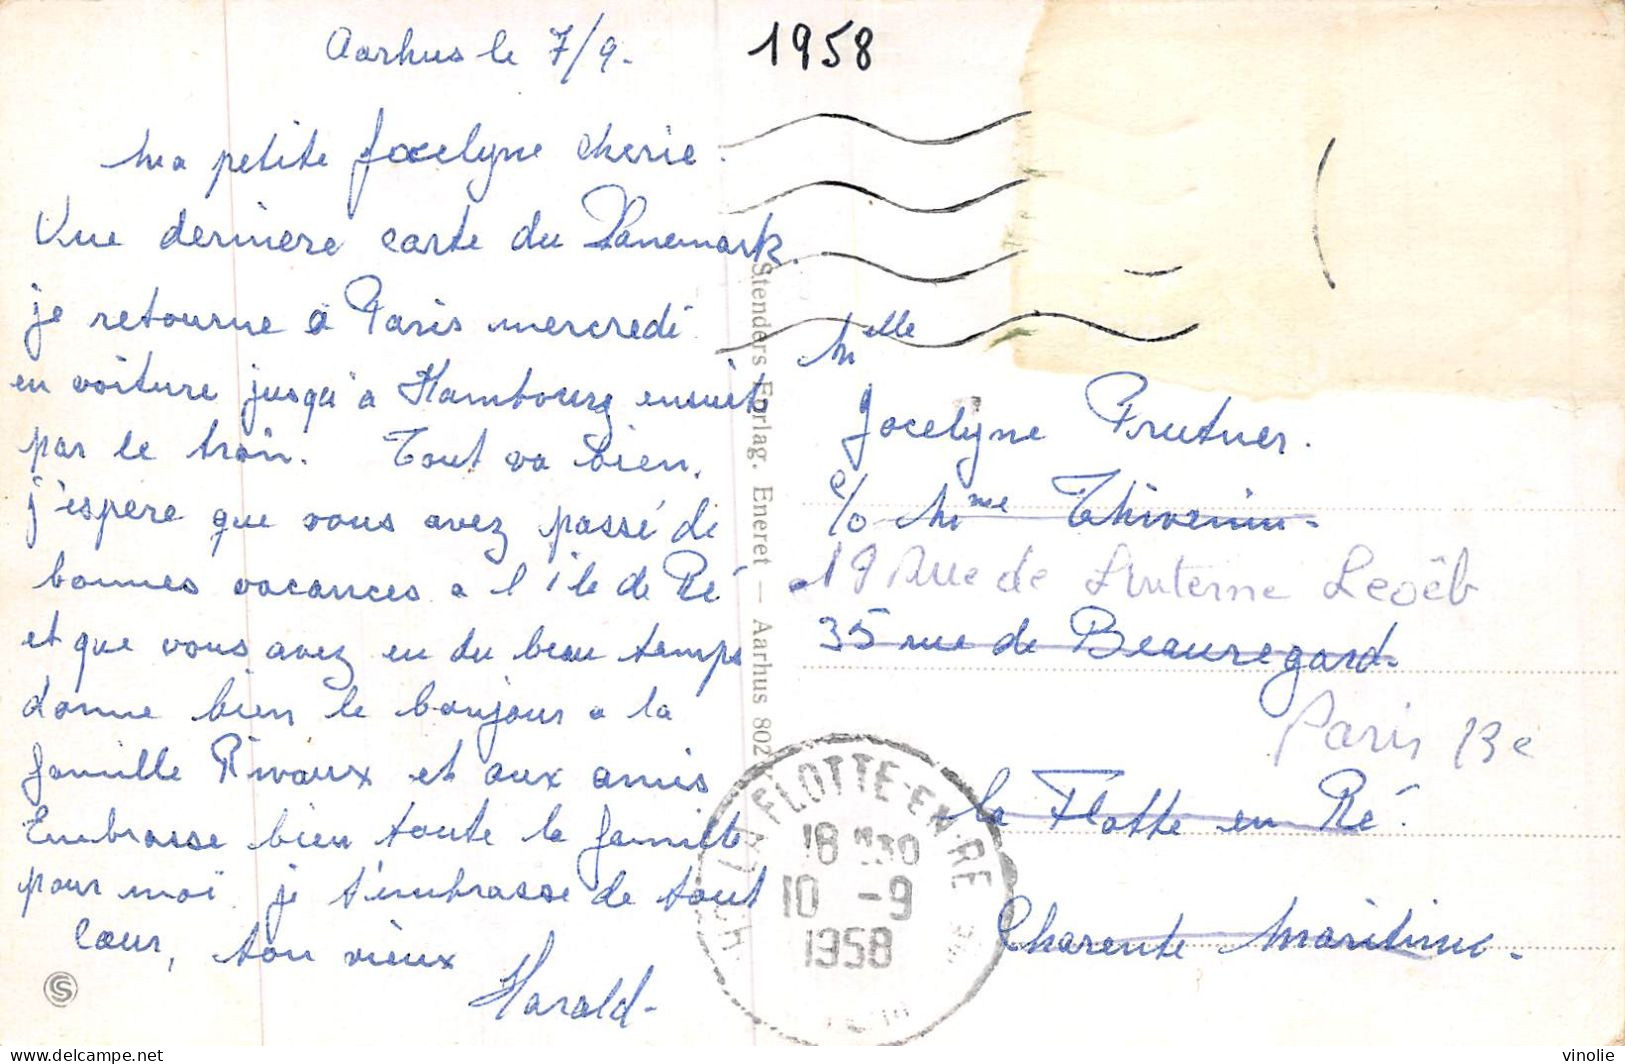 Aarhus le 7/9-
1958
Ma petite Jocelyne cherie.
Une derniere carte du Danemark.
je retourne a Paris mercredi
en voiture jusqu'a Hambourg ensuite
par le train. Tout va bien.
j'espere que vous avez passé de
bonnes vacances a l'ile de Ré
et que vous avez eu du beau temps
donne bien le bonjour a la
famille Rivaux et aux amis
Embrasse bien toute la famille
pour moi. je t'embrasse de tout
Cœur, ton vieux
Harald-
Stenders Forlag. Eneret — Aarhus 802
Mlle
Jocelyne Prutner.
c/o Mme Thivenin-
19 Rue de
35 rue de Beauregard-
Paris 13e
la Flotte en Ré.
Charente Maritime-
LA FLOTTE-EN-RE
18 H30
10 -9
1958
S
www.delcampe.net
vinolie